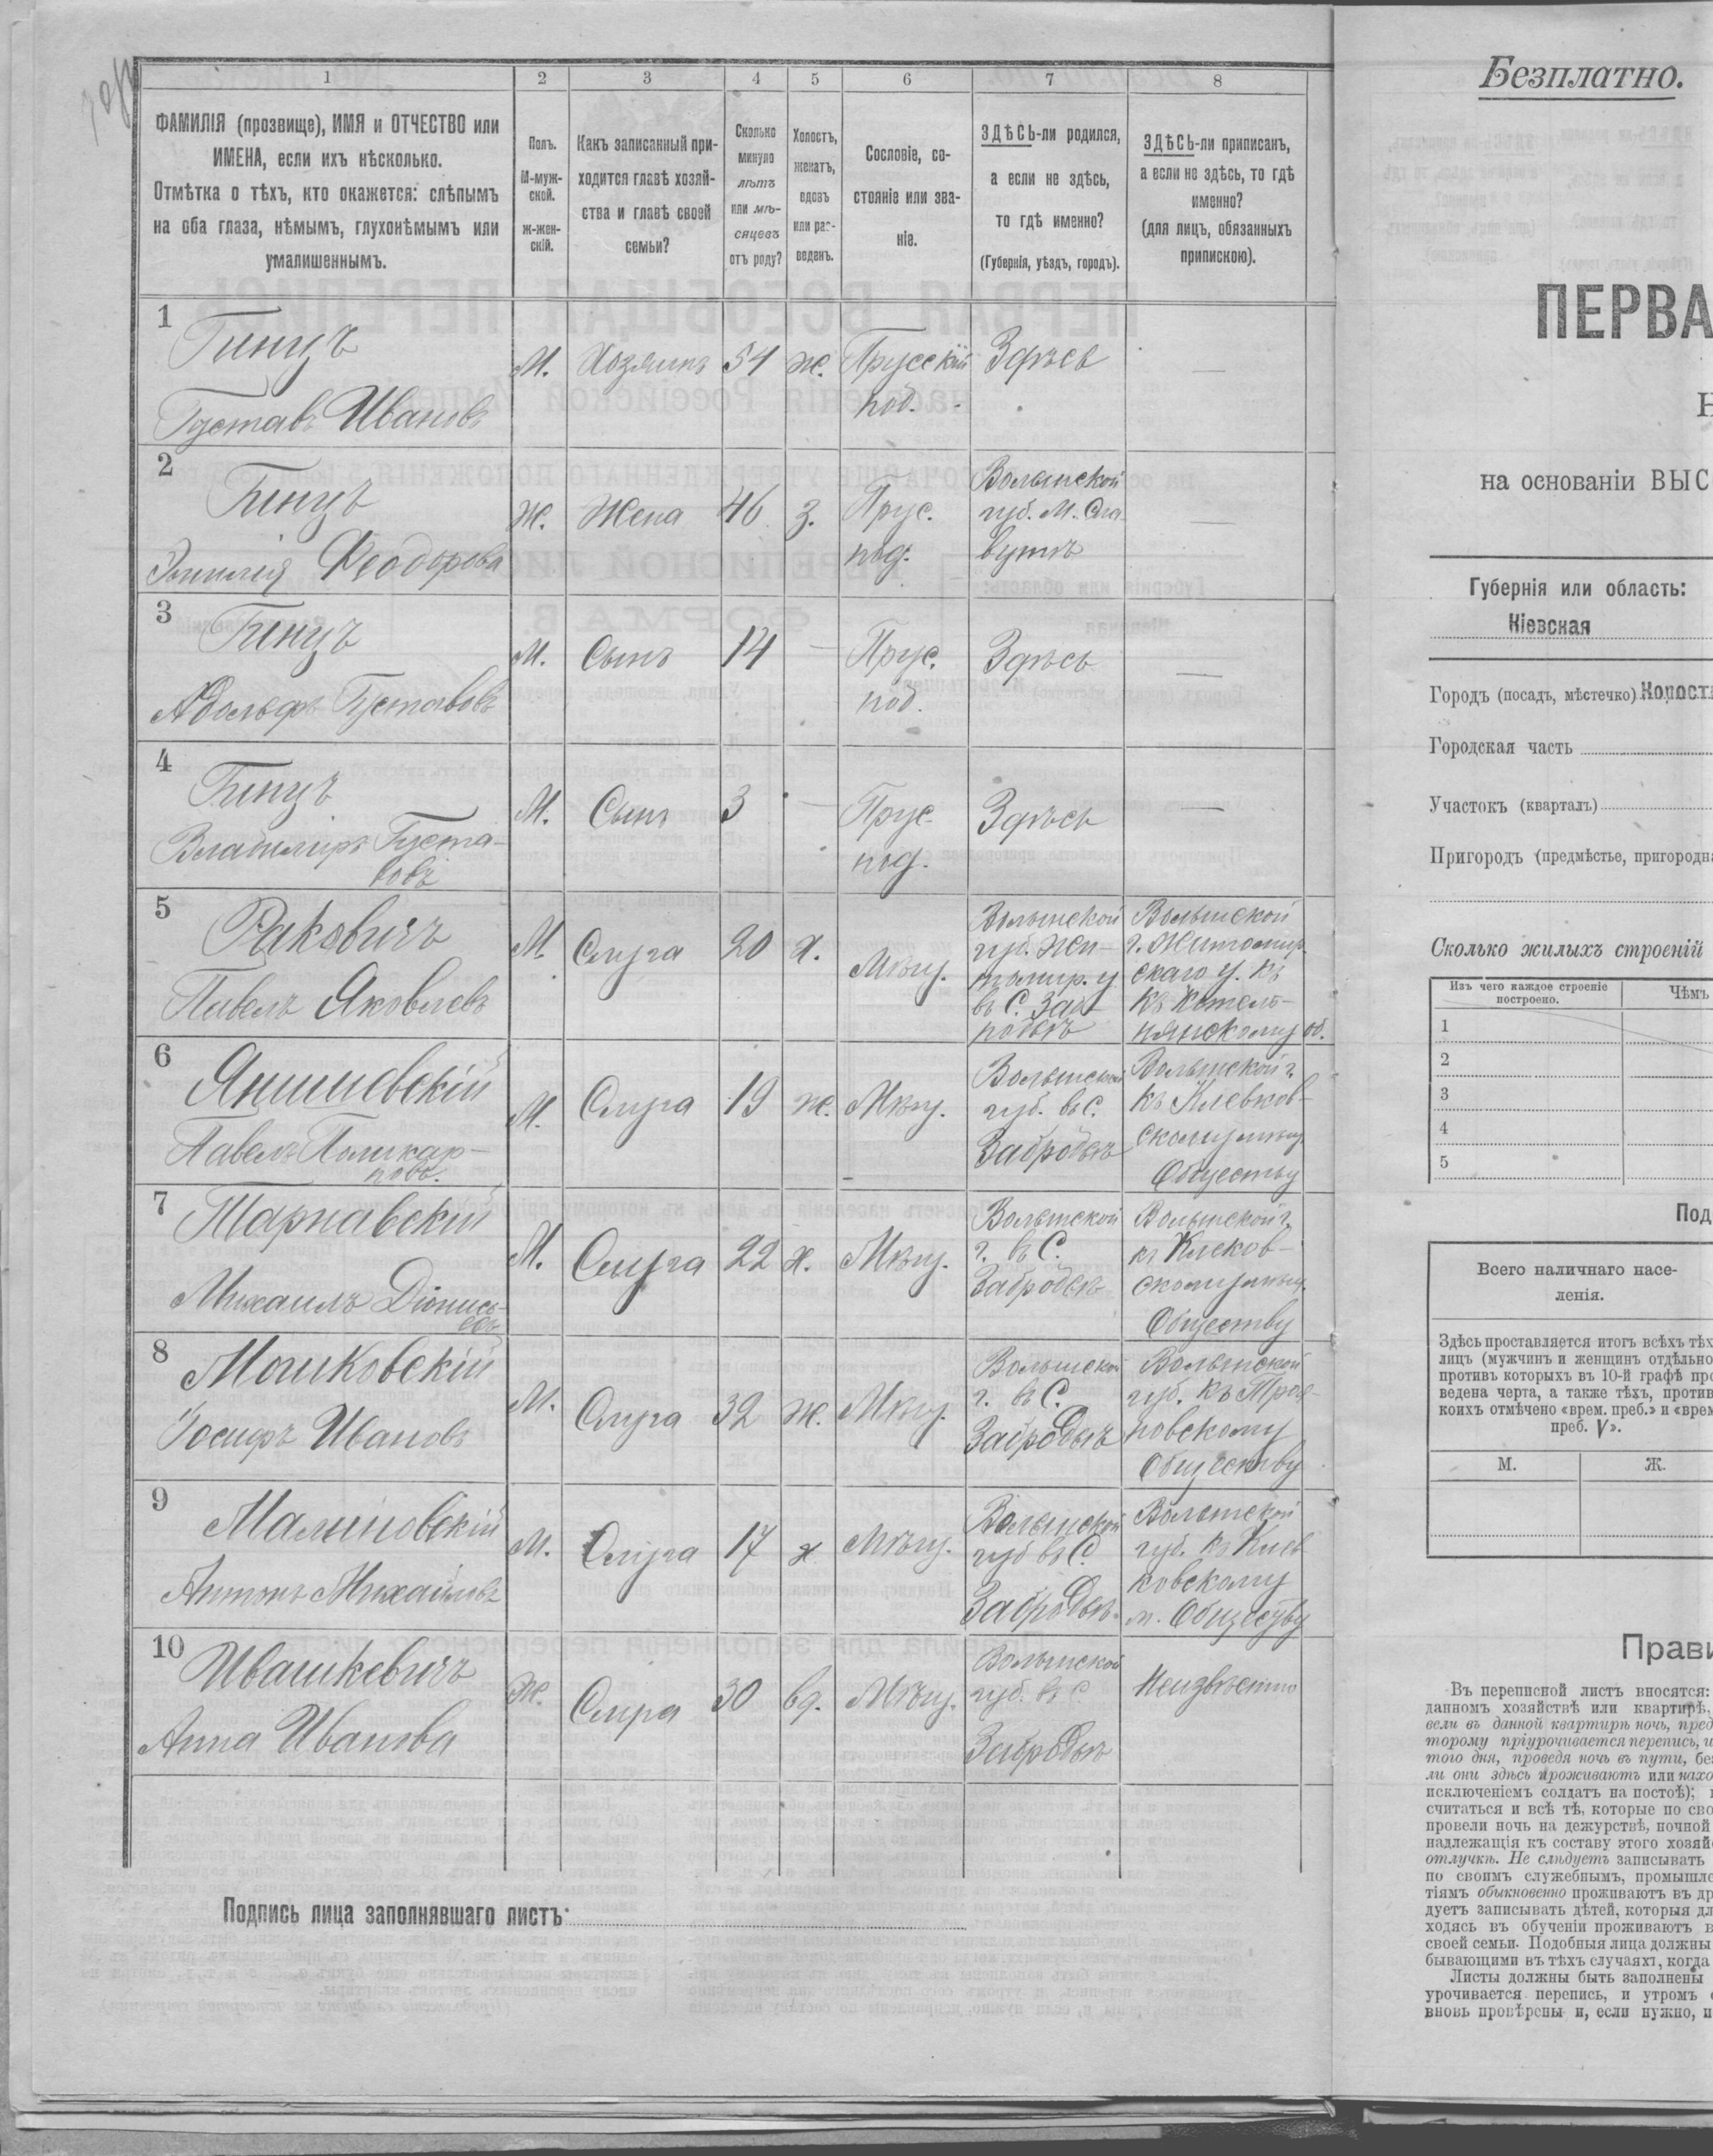 1 2 3 4 5 6 7 8
ФАМИЛІЯ (прозвище), ИМЯ и ОТЧЕСТВО или
ИМЕНА, если ихъ нѣсколько.
Отмѣтка о тѣхъ, кто окажется: слѣпымъ
на оба глаза, нѣмымъ, глухонѣмымъ или
умалишеннымъ.
Полъ.
М-муж-
ской.
ж-жен-
скій.
Какъ записанный при-
ходится главѣ хозяй-
ства и главѣ своей
семьи?
Сколько
минуло
лѣтъ
или мѣ-
сяцевъ
отъ роду?
Холостъ,
женатъ,
вдовъ
или раз-
веденъ.
Сословіе, со-
стояніе или зва-
ніе.
ЗДѢСЬ-ли родился,
а если не здѣсь,
то гдѣ именно?
(Губернія, уѣздъ, городъ).
ЗДѢСЬ-ли приписанъ,
а если не здѣсь, то гдѣ
именно?
(для лицъ, обязанныхъ
припискою).
1
Гинцъ
Густавъ Ивановъ
М.
Хозяинъ
54
ж.
Прусскій
под.
Здѣсь
—
2
Гинцъ
Эмилія Ѳеодорова
Ж.
Жена
46
з.
Прус.
под.
Волынской
губ. М. Сла-
вутѣ
—
3
Гинцъ
Адольфъ Густавовъ
М.
Сынъ
14
—
Прус.
под.
Здѣсь
—
4
Гинцъ
Владиміръ Густа-
вовъ
М.
Сынъ
3
—
Прус.
под.
Здѣсь
—
5
Раковичъ
Павелъ Яковлевъ
М.
Слуга
20
х.
Мѣщ.
Волынской
губ. Жи-
томир. у.
въ С.
Волынской
г. Житомир-
скаго у. къ
къ Котель-
нянскому об.
6
Янишевскій
Павелъ Поликар-
повъ.
М.
Слуга
19
ж.
Мѣщ.
Волынской
губ. въ С.
Забродьѣ
Волынской г.
къ
Обществу
7
Тарнавскій
Михаилъ Діонись-
евъ
М.
Слуга
22
х.
Мѣщ.
Волынской
г. въ С.
Забродьѣ
Волынской г.
къ
Обществу
8
Мошковскій
Іосифъ Ивановъ
М.
Слуга
32
ж.
Мѣщ.
Волынской
г. въ С.
Забродьѣ
Волынской
губ. къ Троя-
новскому
Обществу
9
Малиновскій
Антонъ Михайловъ
М.
Слуга
17
х
Мѣщ.
Волынской
губ въ С.
Забродьѣ.
Волынской
губ. къ
ковскому
м. Обществу
10
Ивашкевичъ
Анна Иванова
Ж.
Слуга
30
вд.
Мѣщ.
Волынской
губ. въ С.
Забродьѣ
Неизвѣстно
Подпись лица заполнявшаго листъ:
Безплатно.
ПЕРВА
Н
на основаніи ВЫС
Губернія или область:
Кіевская
Городъ (посадъ, мѣстечко)
Городская часть
Участокъ (кварталъ)
Пригородъ (предмѣстье, пригородна
Сколько жилыхъ строеній
Изъ чего каждое строеніе
построено.
Чѣмъ
1
2
3
4
5
Под
Всего наличнаго насе-
ленія.
Здѣсь проставляется итогъ всѣхъ тѣх
лицъ (мужчинъ и женщинъ отдѣльно
противъ которыхъ въ 10-й графѣ про
ведена черта, а также тѣхъ, против
коихъ отмѣчено «врем. преб.» и «врем
преб. V».
М. Ж.
Прави
Въ переписной листъ вносятся:
данномъ хозяйствѣ или квартирѣ,
вели въ данной квартирѣ ночь, пред
торому пріурочивается перепись, и
того дня, проведя ночь въ пути, бе
ли они здѣсь проживаютъ или нахо
исключеніемъ солдатъ на постоѣ);
считаться и всѣ тѣ, которые по сво
провели ночь на дежурствѣ, ночной
надлежащія къ составу этого хозяй
отлучкѣ. Не слѣдуетъ записывать
по своимъ служебнымъ, промышле
тіямъ обыкновенно проживаютъ въ др
дуетъ записывать дѣтей, которыя дл
ходясь въ обученіи проживаютъ в
своей семьи. Подобныя лица должны
бывающими въ тѣхъ случаяхъ, когда
Листы должны быть заполнены
урочивается перепись, и утромъ
вновь провѣрены и, если нужно, и